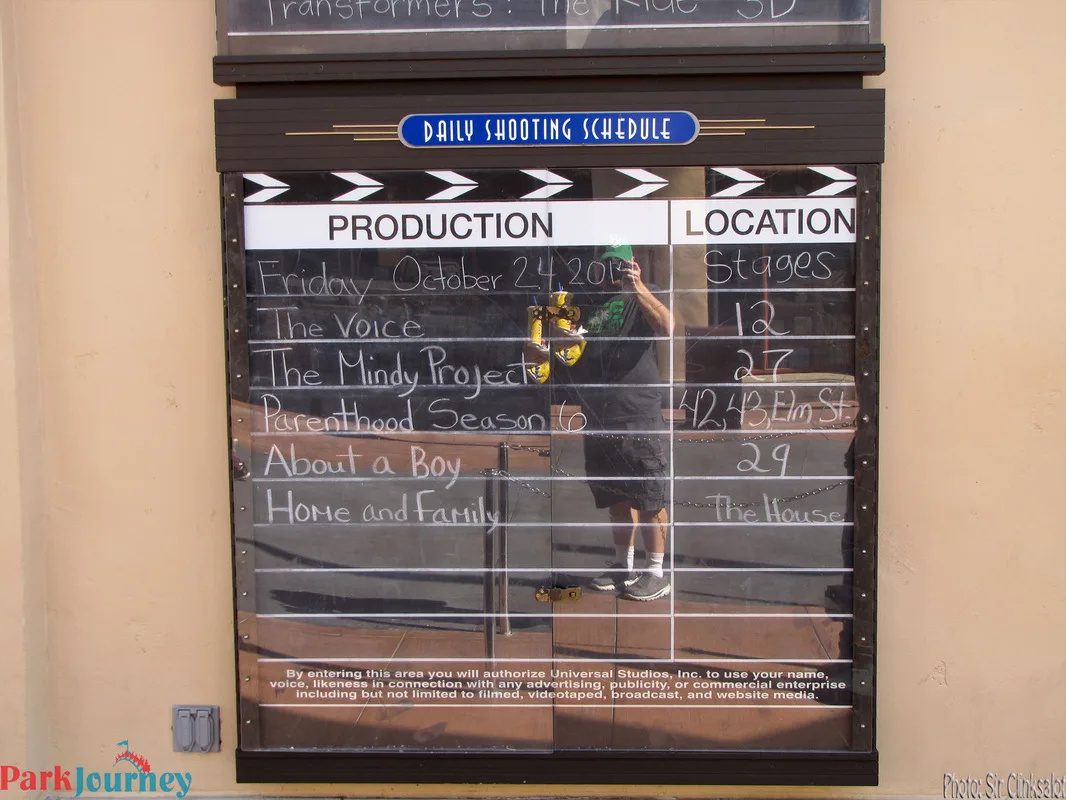 Transformers: The Ride 3D
DAILY SHOOTING SCHEDULE
PRODUCTION LOCATION
Friday October 24 2014 Stages
The Voice 12
The Mindy Project 27
Parenthood Season 6 42, 43, Elm St.
About a Boy 29
Home and Family The House
By entering this area you will authorize Universal Studios, Inc. to use your name,
voice, likeness in connection with any advertising, publicity, or commercial enterprise
including but not limited to filmed, videotaped, broadcast, and website media.
ParkJourney
Photo: Sir Clinksalot